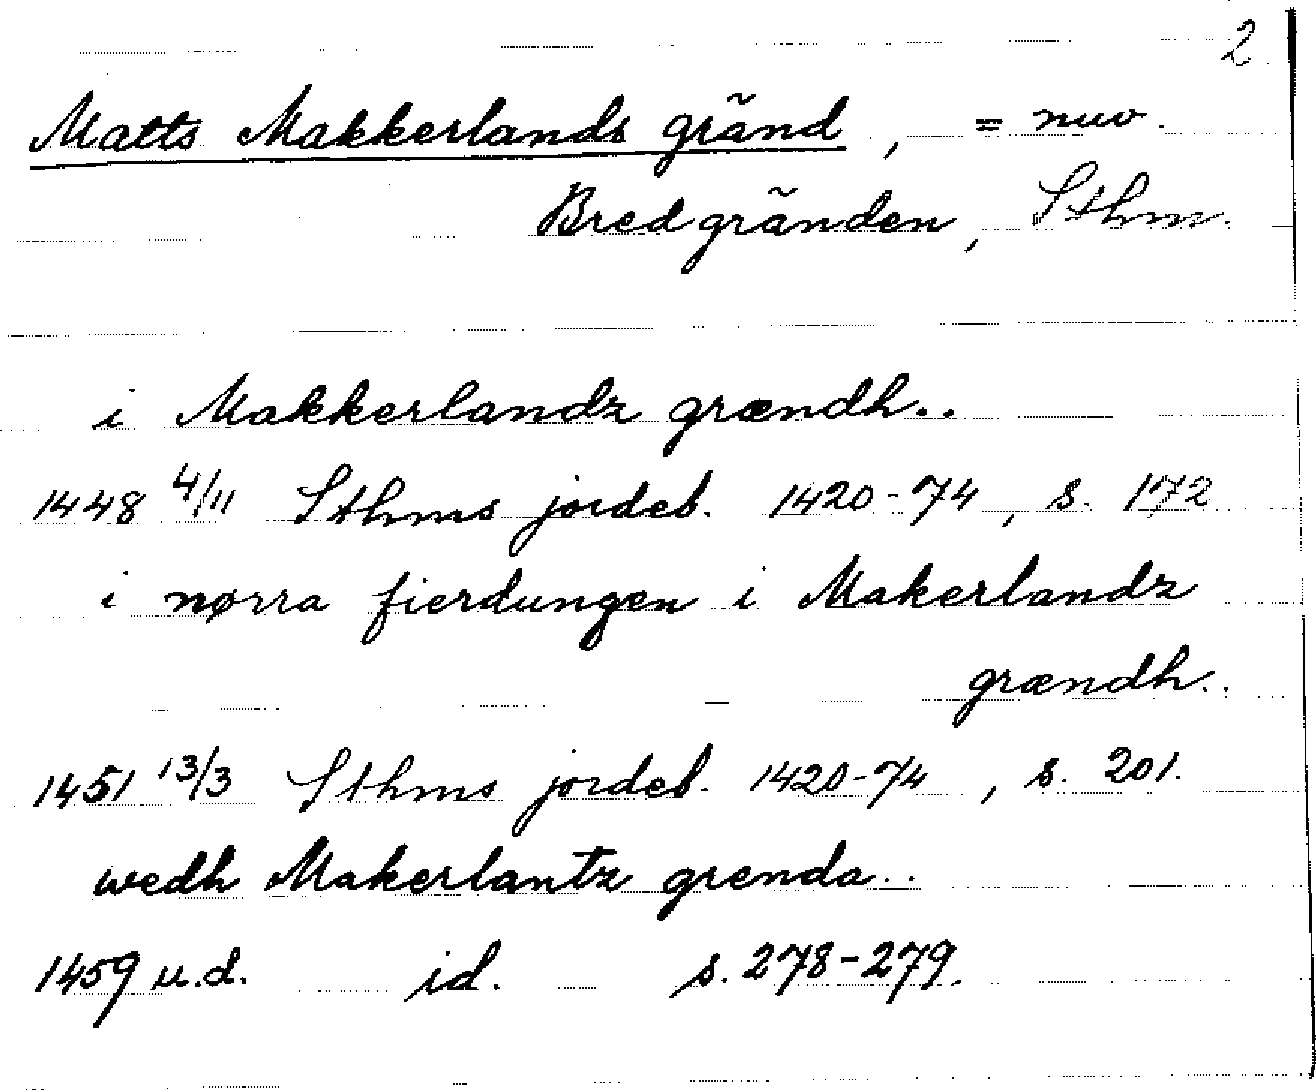 2
Matts Makkerlands gränd, = nuv.
Bredgränden, Sthm.
i Makkerlandz grændh..
1448 4/11 Sthms jordeb. 1420-74, s. 172
i nørra fierdungen i Makerlandz
grændh..
1451 13/3 Sthms jordeb. 1420-74, s. 201.
wedh Makerlantz grenda..
1459 u.d. id. s. 278-279.